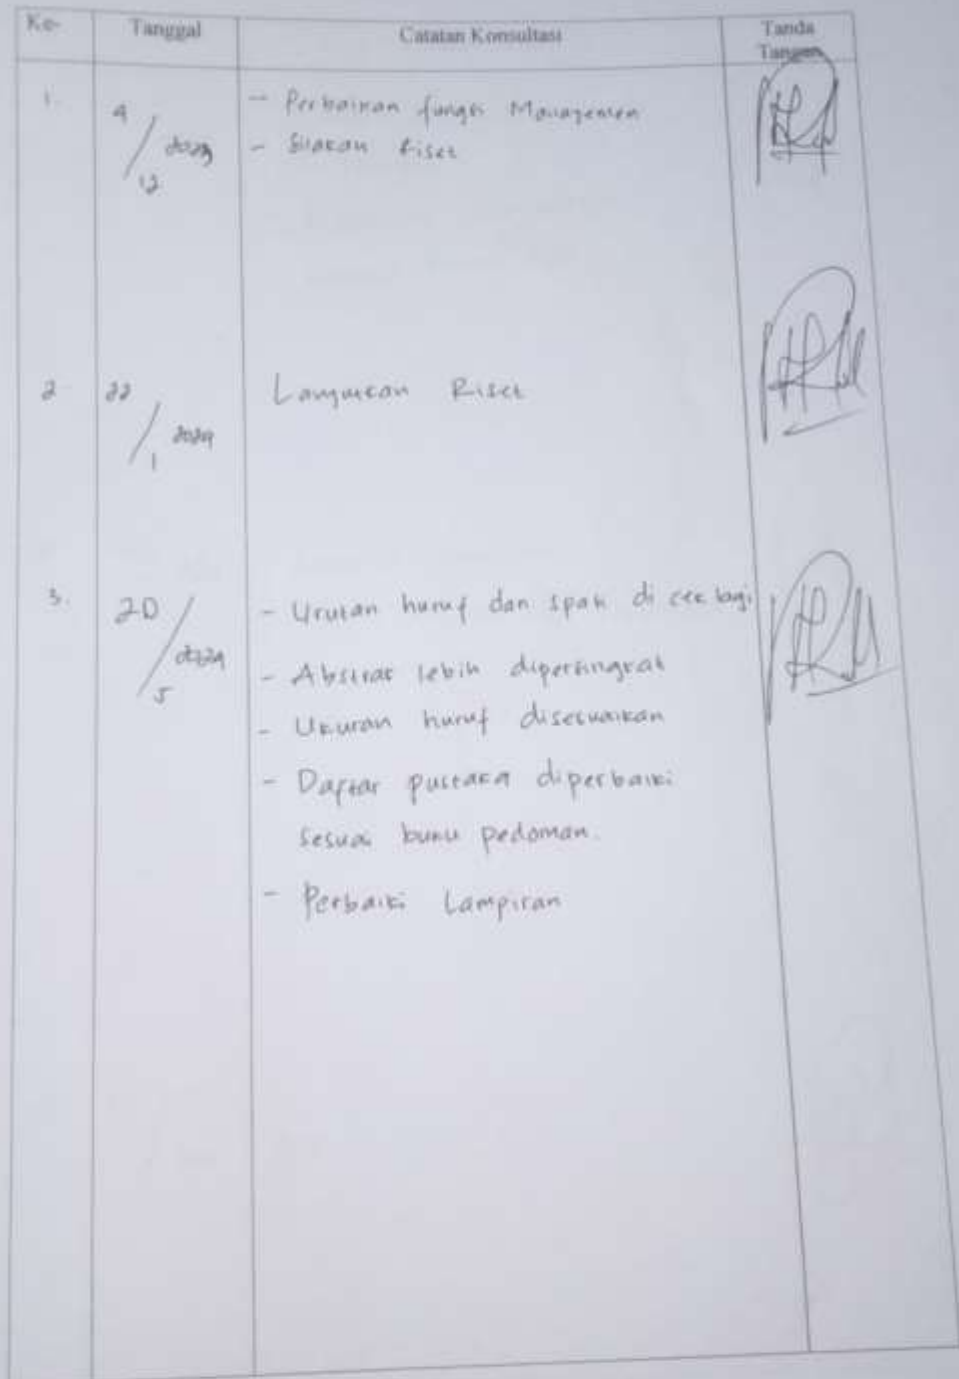 Ke- Tanggal Catatan Konsultasi Tanda Tangan
1. 4/12 2023 - Perbaikan fungsi Managemen
- Silakan Riset
2 22/1 2024 Lanjutkan Riset
3. 20/5 2024 - Urutan huruf dan spasi di cek lagi
- Abstrak lebih dipersingkat
- Ukuran huruf disesuaikan
- Daftar pustaka diperbaiki
sesuai buku pedoman.
- Perbaiki Lampiran